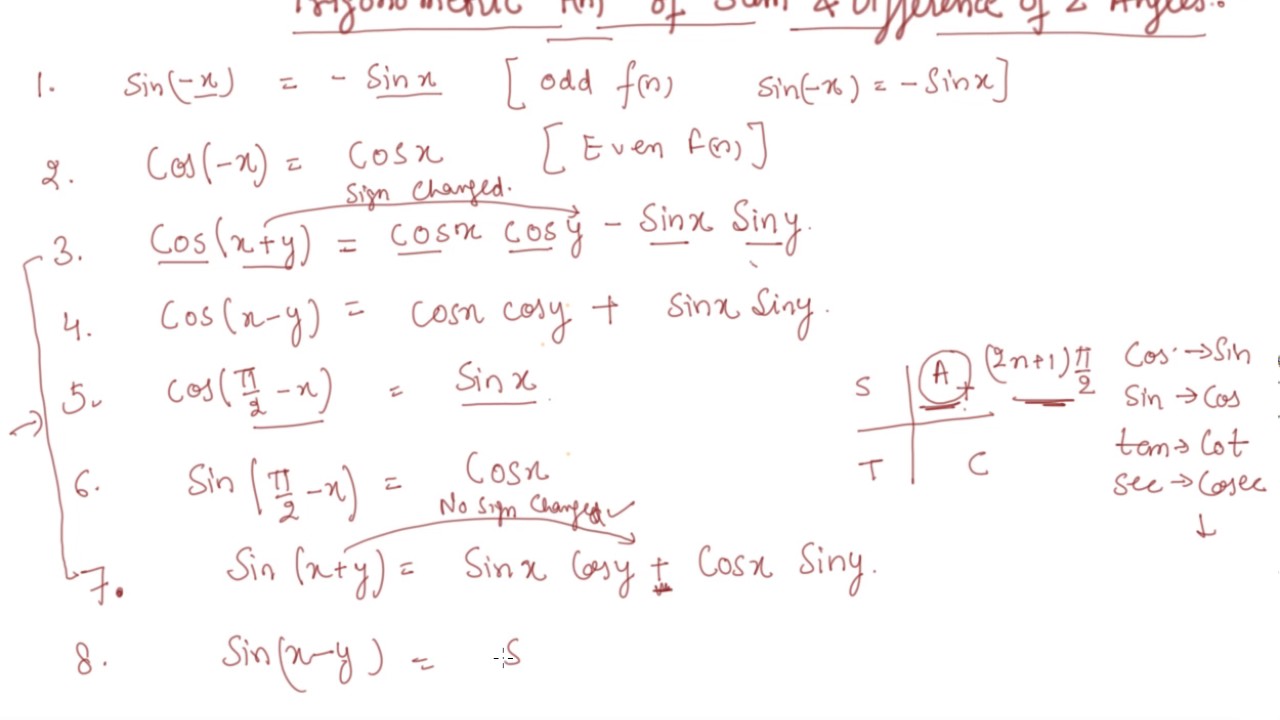 Trigonometric f(n) of Sum & Difference of 2 Angles.
1. Sin(-x) = - Sin x [ odd f(n) Sin(-x) = - Sin x ]
2. Cos(-x) = Cos x [ Even f(n) ]
Sign Changed.
3. Cos(x+y) = cos x cos y - Sin x Sin y.
4. Cos(x-y) = cos x cos y + sin x Sin y.
5. cos(π/2 - x) = Sin x.
6. Sin(π/2 - x) = Cos x
No Sign Changed ✓
7. Sin (x+y) = Sin x Cos y + Cos x Sin y.
8. Sin(x-y) = S
S A + (2n+1)π/2
T C
Cos → Sin
Sin → Cos
tan → Cot
sec → Cosec
↓